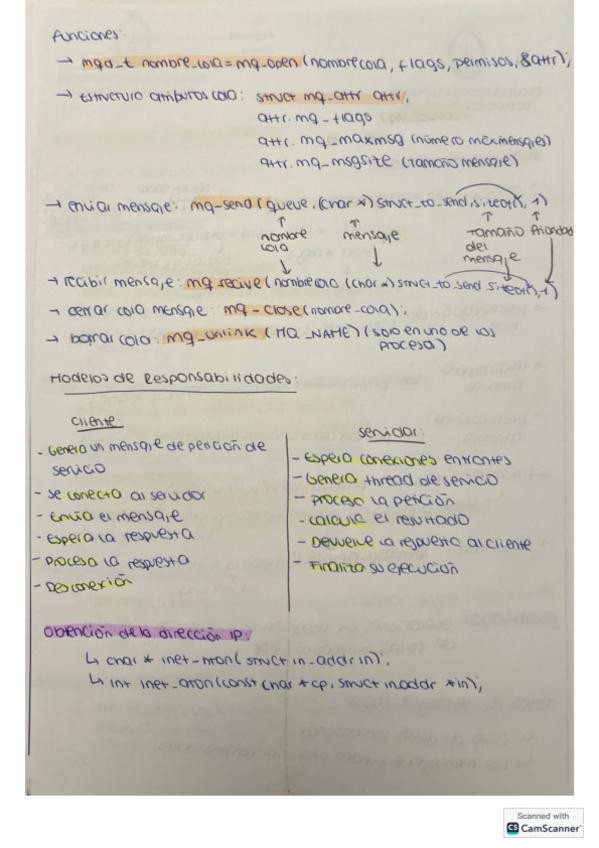 Funciones:
→ mqd_t nombre_cola = mq_open(nombrecola, flags, permisos, &attr);
→ Estructura atributos cola: struct mq_attr attr;
attr.mq_flags
attr.mq_maxmsg (número máx mensajes)
attr.mq_msgsize (tamaño mensaje)
→ enviar mensaje: mq_send(queue, (char *) struct_to_send, sizeof(), 1)
nombre cola
mensaje
tamaño del mensaje
Prioridad
→ recibir mensaje: mq_recive(nombrecola (char *) struct_to_send, sizeof(), 1)
→ cerrar cola mensaje: mq_close(nombre_cola);
→ borrar cola: mq_unlink(MQ_NAME) (solo en uno de los
procesos)
Modelos de Responsabilidades:
Cliente:
- Genera un mensaje de petición de
servicio
- se conecta al servidor
- Envía el mensaje
- Espera la respuesta
- Procesa la respuesta
- Desconexión
Servidor:
- Espera conexiones entrantes
- Genera thread de servicio
- Procesa la petición
- calcula el resultado
- Devuelve la respuesta al cliente
- Finaliza su ejecución
Obención de la dirección IP:
↳ char * inet_ntoa(struct in_addr in);
↳ int inet_aton(const char *cp, struct in_addr *in);
Scanned with
CS CamScanner